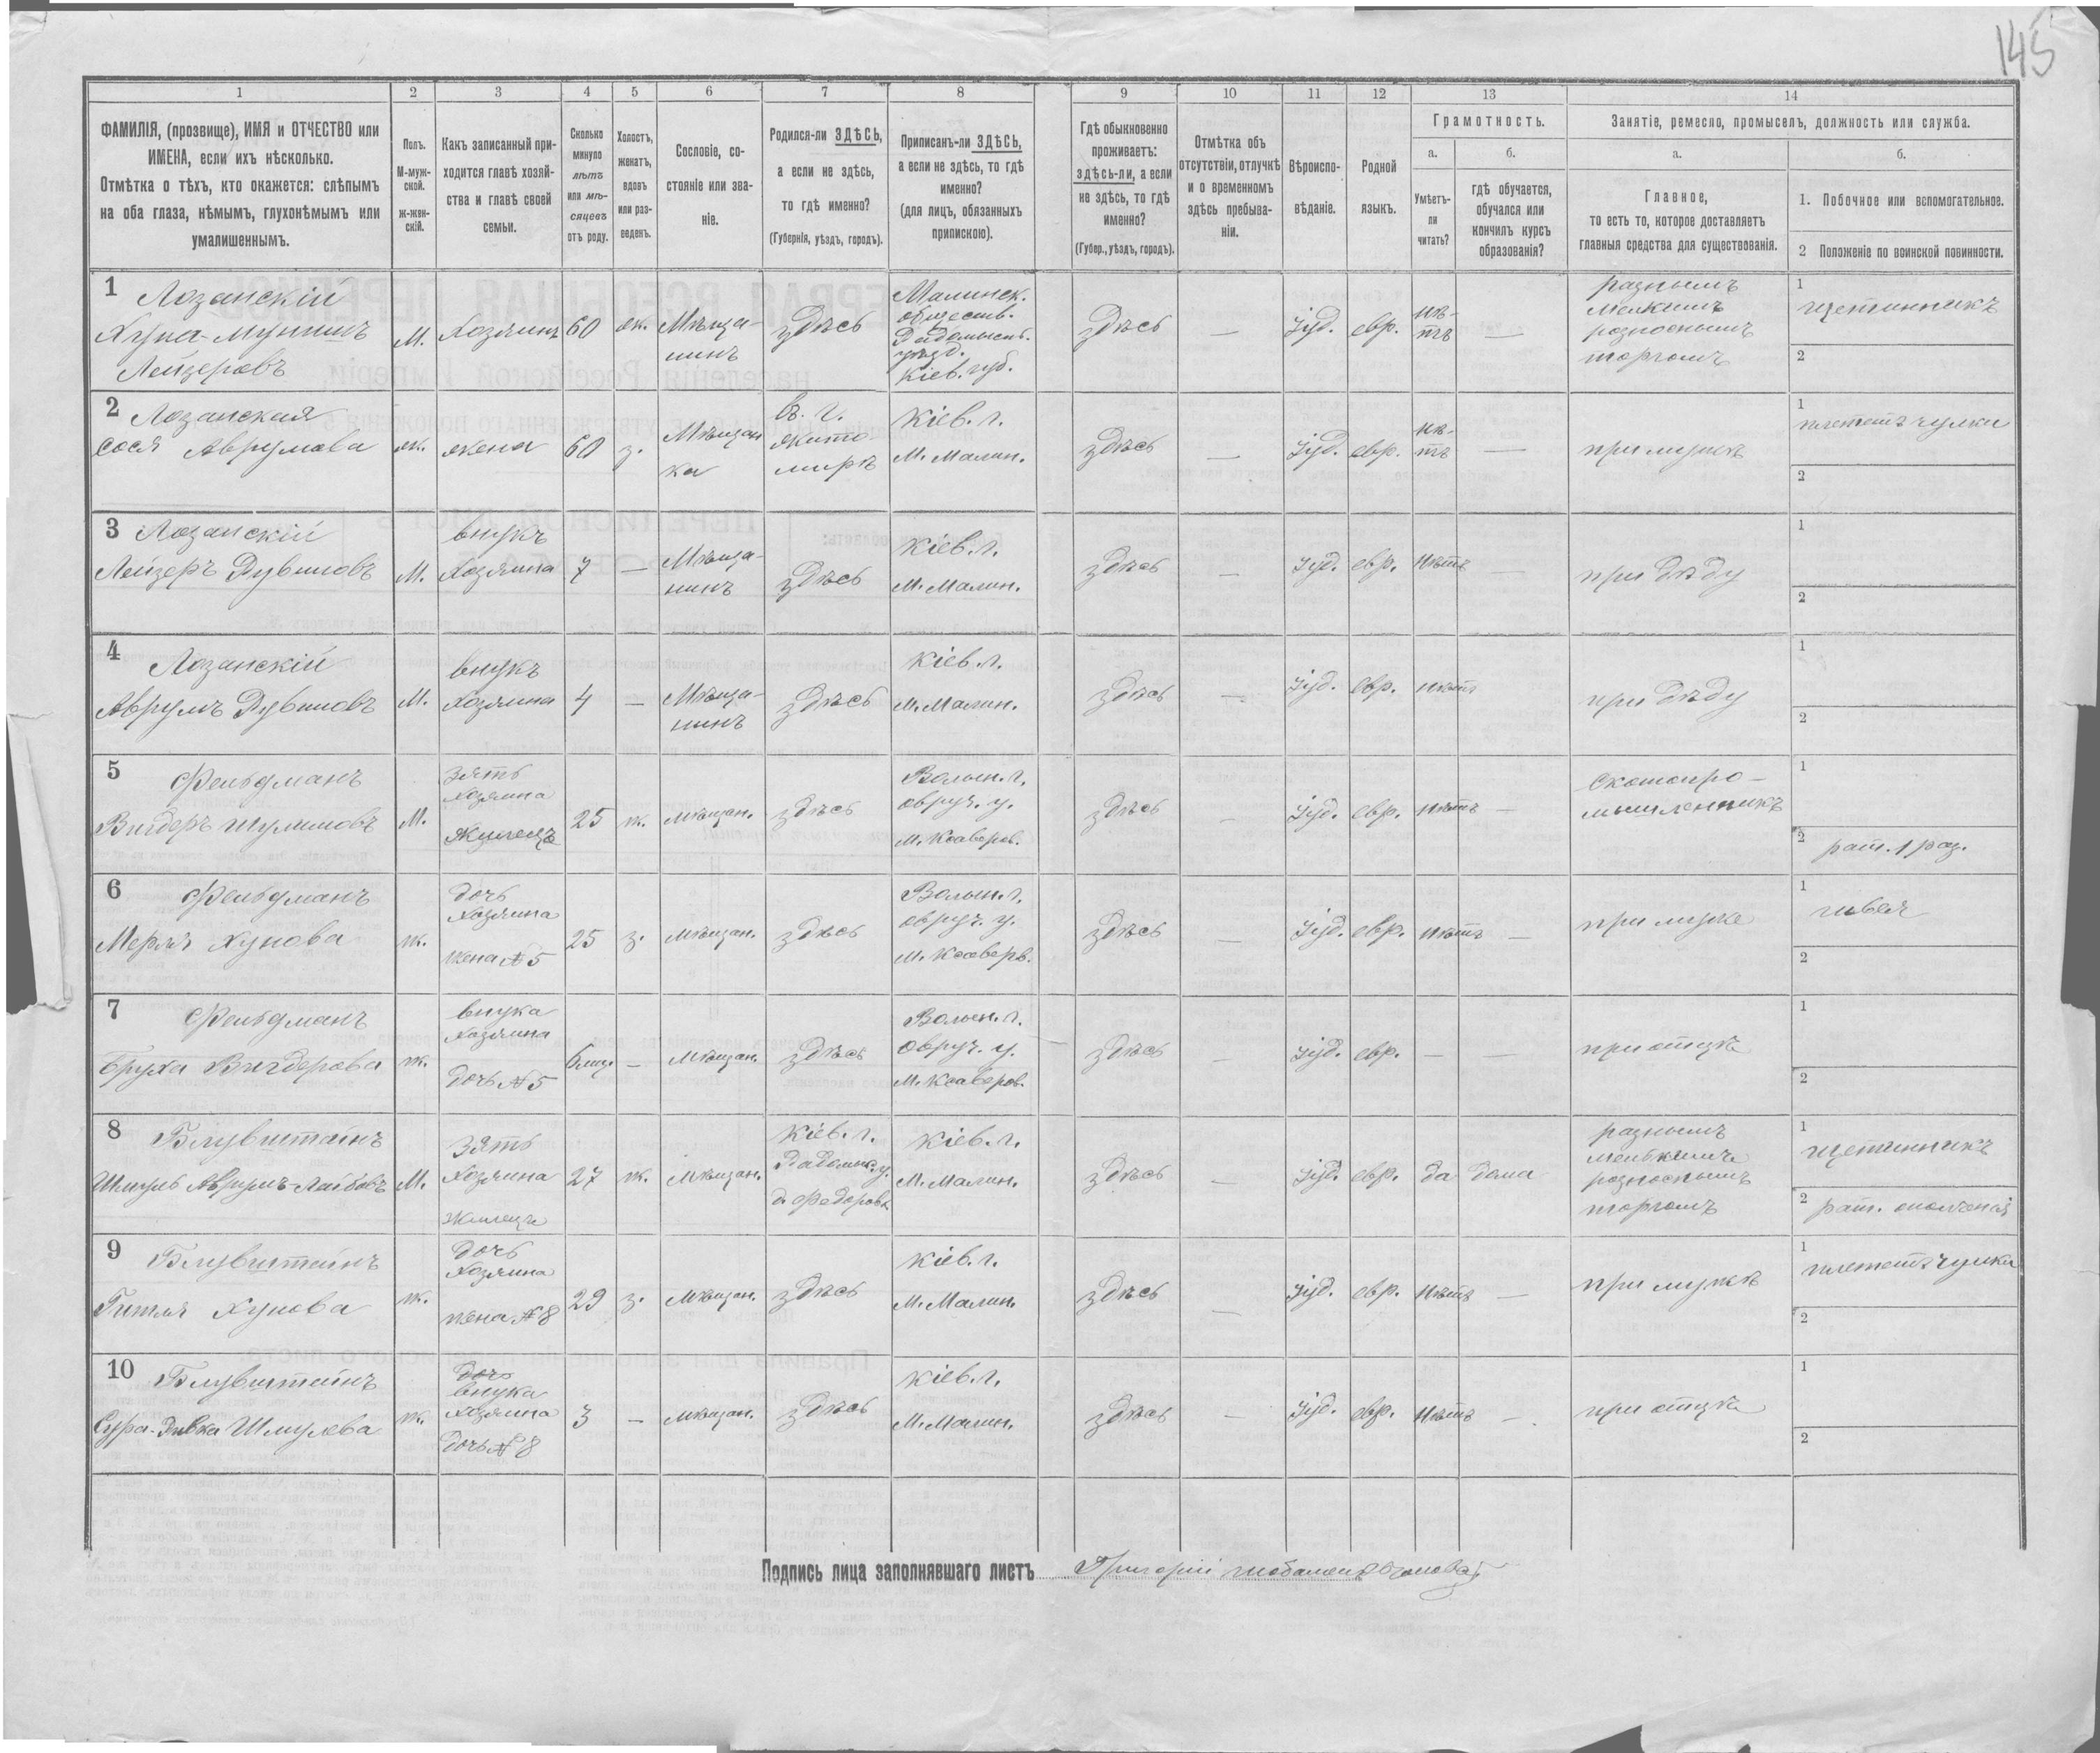 145
1 2 3 4 5 6 7 8 9 10 11 12 13 14
ФАМИЛІЯ, (прозвище), ИМЯ и ОТЧЕСТВО или
ИМЕНА, если ихъ нѣсколько.
Отмѣтка о тѣхъ, кто окажется: слѣпымъ
на оба глаза, нѣмымъ, глухонѣмымъ или
умалишеннымъ.
Полъ.
М-муж-
ской.
ж-жен-
скій.
Какъ записанный при-
ходится главѣ хозяй-
ства и главѣ своей
семьи.
Сколько
минуло
лѣтъ
или мѣ-
сяцевъ
отъ роду.
Холостъ,
женатъ,
вдовъ
или раз-
веденъ.
Сословіе, со-
стояніе или зва-
ніе.
Родился-ли ЗДѢСЬ,
а если не здѣсь,
то гдѣ именно?
(Губернія, уѣздъ, городъ).
Приписанъ-ли ЗДѢСЬ,
а если не здѣсь, то гдѣ
именно?
(для лицъ, обязанныхъ
припискою).
Гдѣ обыкновенно
проживаетъ:
здѣсь-ли, а если
не здѣсь, то гдѣ
именно?
(Губер., уѣздъ, городъ).
Отмѣтка объ
отсутствіи, отлучкѣ
и о временномъ
здѣсь пребыва-
ніи.
Вѣроиспо-
вѣданіе.
Родной
языкъ.
Грамотность.
а. б.
Умѣетъ-
ли
читать?
гдѣ обучается,
обучался или
кончилъ курсъ
образованія?
Занятіе, ремесло, промыселъ, должность или служба.
а. б.
Главное,
то есть то, которое доставляетъ
главныя средства для существованія.
1. Побочное или вспомогательное.
2 Положеніе по воинской повинности.
1 Лозанскій
Хуна-Мунишъ
Лейзеровъ
М.
Хозяинъ
60
ж.
Мѣща-
нинъ
здѣсь
Малинск.
обществ.
Радомысл.
уѣзд.
Кіев. губ.
здѣсь
—
Іуд.
евр.
нѣ-
тъ
—
разнымъ
мелкимъ
разноснымъ
торгомъ
1
щетинникъ
2
2 Лозанская
Сося Аврумова
ж.
жена
60
з.
Мѣщан
ка
въ г.
Жито-
мирѣ
Кіев. г.
м. Малин.
здѣсь
—
Іуд.
евр.
нѣ-
тъ
—
при мужѣ
1
плететъ чулки
2
3 Лозанскій
Лейзеръ Дувиновъ
М.
внукъ
Хозяина
7
—
Мѣща-
нинъ
здѣсь
Кіев. г.
м. Малин.
здѣсь
—
Іуд.
евр.
нѣтъ
при дѣду
1
2
4 Лозанскій
Аврумъ Дувиновъ
М.
внукъ
Хозяина
4
—
Мѣща-
нинъ
здѣсь
Кіев. г.
м. Малин.
здѣсь
—
Іуд.
евр.
нѣтъ
при дѣду
1
2
5 Фельдманъ
Вигдеръ Шулимовъ
М.
зять
Хозяина
Жилецъ
25
ж.
Мѣщан.
здѣсь
Волын. г.
овруч. у.
м. Ксаверов.
здѣсь
—
Іуд.
евр.
нѣтъ
—
Скотопро-
мышленникъ
1
2
рат. 1 раз.
6 Фельдманъ
Мерля Хунова
ж.
дочь
Хозяина
жена №5
25
з.
Мѣщан.
здѣсь
Волын. г.
овруч. у.
м. Ксаверв.
здѣсь
—
Іуд.
евр.
нѣтъ
—
при муже
1
швея
2
7 Фельдманъ
Бруха Вигдерова
ж.
внука
Хозяина
дочь №5
6 мц.
—
Мѣщан.
здѣсь
Волын. г.
Овруч. у.
м. Ксаверов.
здѣсь
—
Іуд.
евр.
—
—
при отцѣ
1
2
8 Блувштейнъ
Шмуль Аврумъ-Лейбовъ
М.
зять
Хозяина
жилецъ
27
ж.
Мѣщан.
Кіев. г.
Радомыс. у.
д. Федоровк.
Кіев. г.
м. Малин.
здѣсь
—
Іуд.
евр.
да
дома
разнымъ
мелкимъ
разноснымъ
торгомъ
1
щетинникъ
2
рат. ополченія
9 Блувштейнъ
Гитля Хунова
ж.
дочь
Хозяина
жена №8
29
з.
Мѣщан.
здѣсь
Кіев. г.
м. Малин.
здѣсь
—
Іуд.
евр.
нѣтъ
—
при мужѣ
1
плететъ чулки
2
10 Блувштейнъ
Сура-Ривка Шмулева
ж.
дочь
внука
Хозяина
дочь №8
3
—
Мѣщан.
здѣсь
Кіев. г.
м. Малин.
здѣсь
—
Іуд.
евр.
нѣтъ
—
при отцѣ
1
2
Подпись лица заполнявшаго листъ Григорій